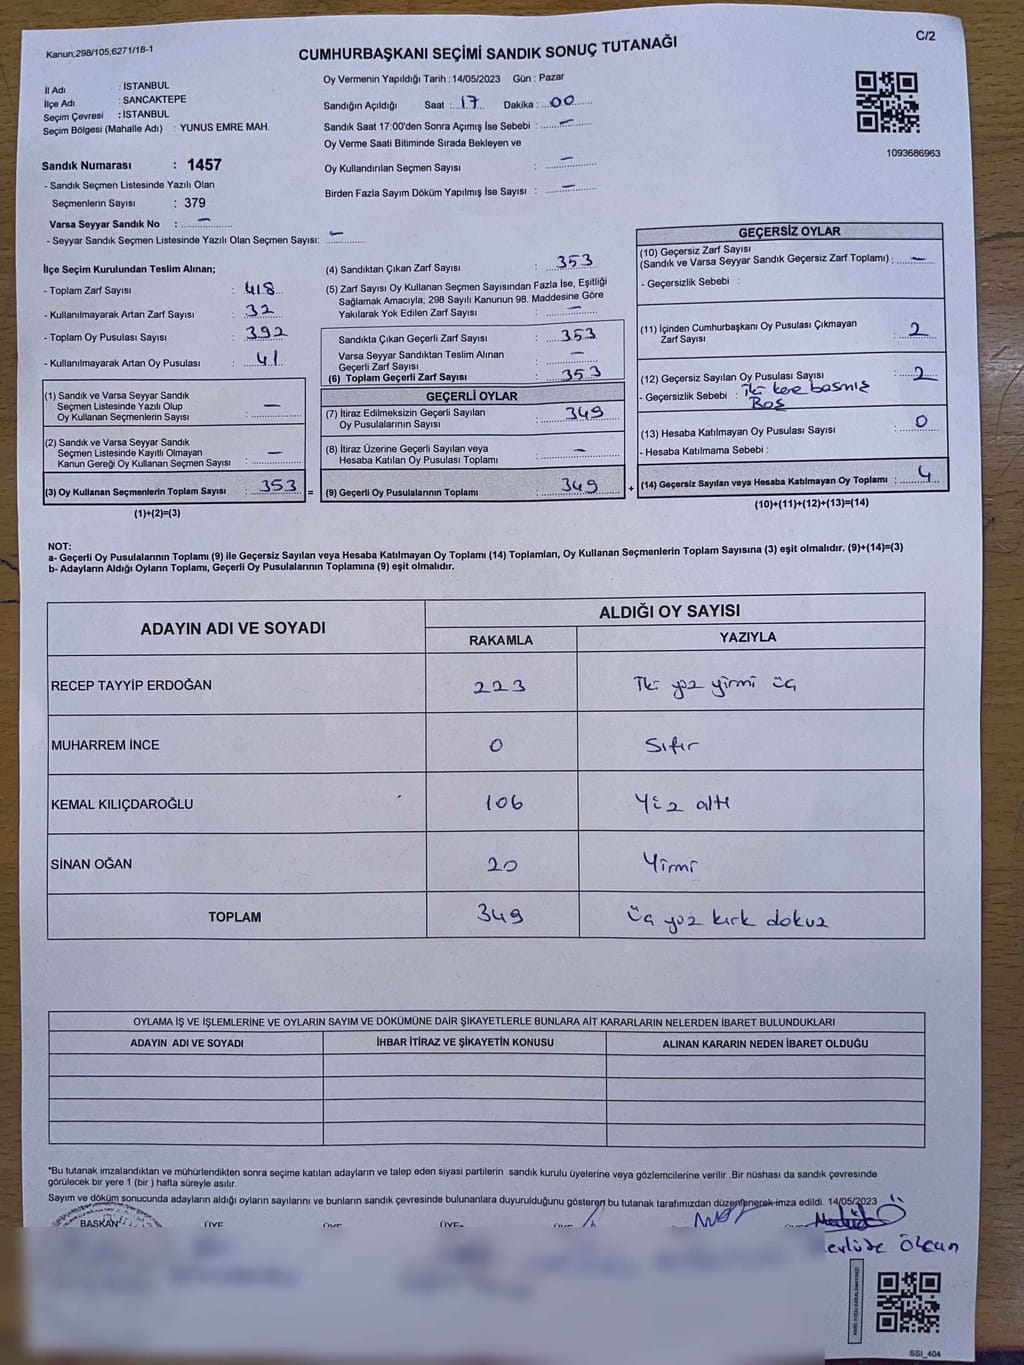 Kanun;298/105;6271/18-1
CUMHURBAŞKANI SEÇİMİ SANDIK SONUÇ TUTANAĞI
C/2
İl Adı : İSTANBUL
İlçe Adı : SANCAKTEPE
Seçim Çevresi : İSTANBUL
Seçim Bölgesi (Mahalle Adı) : YUNUS EMRE MAH.
Sandık Numarası : 1457
- Sandık Seçmen Listesinde Yazılı Olan
Seçmenlerin Sayısı : 379
Varsa Seyyar Sandık No : –
- Seyyar Sandık Seçmen Listesinde Yazılı Olan Seçmen Sayısı: –
Oy Vermenin Yapıldığı Tarih : 14/05/2023 Gün : Pazar
Sandığın Açıldığı Saat : 17 Dakika : 00
Sandık Saat 17:00'den Sonra Açımış İse Sebebi : –
Oy Verme Saati Bitiminde Sırada Bekleyen ve
Oy Kullandırılan Seçmen Sayısı : –
Birden Fazla Sayım Döküm Yapılmış İse Sayısı : –
1093686963
İlçe Seçim Kurulundan Teslim Alınan;
- Toplam Zarf Sayısı : 418
- Kullanılmayarak Artan Zarf Sayısı : 32
- Toplam Oy Pusulası Sayısı : 392
- Kullanılmayarak Artan Oy Pusulası : 41
(1) Sandık ve Varsa Seyyar Sandık
Seçmen Listesinde Yazılı Olup
Oy Kullanan Seçmenlerin Sayısı : –
(2) Sandık ve Varsa Seyyar Sandık
Seçmen Listesinde Kayıtlı Olmayan
Kanun Gereği Oy Kullanan Seçmen Sayısı : –
(3) Oy Kullanan Seçmenlerin Toplam Sayısı : 353 =
(1)+(2)=(3)
(4) Sandıktan Çıkan Zarf Sayısı : 353
(5) Zarf Sayısı Oy Kullanan Seçmen Sayısından Fazla İse, Eşitliği
Sağlamak Amacıyla; 298 Sayılı Kanunun 98. Maddesine Göre
Yakılarak Yok Edilen Zarf Sayısı : –
Sandıkta Çıkan Geçerli Zarf Sayısı : 353
Varsa Seyyar Sandıktan Teslim Alınan
Geçerli Zarf Sayısı : –
(6) Toplam Geçerli Zarf Sayısı : 353
GEÇERLİ OYLAR
(7) İtiraz Edilmeksizin Geçerli Sayılan
Oy Pusulalarının Sayısı : 349
(8) İtiraz Üzerine Geçerli Sayılan veya
Hesaba Katılan Oy Pusulası Toplamı : –
(9) Geçerli Oy Pusulalarının Toplamı : 349 +
GEÇERSİZ OYLAR
(10) Geçersiz Zarf Sayısı
(Sandık ve Varsa Seyyar Sandık Geçersiz Zarf Toplamı) : –
- Geçersizlik Sebebi :
(11) İçinden Cumhurbaşkanı Oy Pusulası Çıkmayan
Zarf Sayısı : 2
(12) Geçersiz Sayılan Oy Pusulası Sayısı : 2
- Geçersizlik Sebebi : iki kere basmış
Boş
(13) Hesaba Katılmayan Oy Pusulası Sayısı : 0
- Hesaba Katılmama Sebebi :
(14) Geçersiz Sayılan veya Hesaba Katılmayan Oy Toplamı : 4
(10)+(11)+(12)+(13)=(14)
NOT:
a- Geçerli Oy Pusulalarının Toplamı (9) ile Geçersiz Sayılan veya Hesaba Katılmayan Oy Toplamı (14) Toplamları, Oy Kullanan Seçmenlerin Toplam Sayısına (3) eşit olmalıdır. (9)+(14)=(3)
b- Adayların Aldığı Oyların Toplamı, Geçerli Oy Pusulalarının Toplamına (9) eşit olmalıdır.
ADAYIN ADI VE SOYADI
ALDIĞI OY SAYISI
RAKAMLA YAZIYLA
RECEP TAYYİP ERDOĞAN 223 İki yüz yirmi üç
MUHARREM İNCE 0 Sıfır
KEMAL KILIÇDAROĞLU 106 Yüz altı
SİNAN OĞAN 20 Yirmi
TOPLAM 349 üç yüz kırk dokuz
OYLAMA İŞ VE İŞLEMLERİNE VE OYLARIN SAYIM VE DÖKÜMÜNE DAİR ŞİKAYETLERLE BUNLARA AİT KARARLARIN NELERDEN İBARET BULUNDUKLARI
ADAYIN ADI VE SOYADI İHBAR İTİRAZ VE ŞİKAYETİN KONUSU ALINAN KARARIN NEDEN İBARET OLDUĞU
*Bu tutanak imzalandıktan ve mühürlendikten sonra seçime katılan adayların ve talep eden siyasi partilerin sandık kurulu üyelerine veya gözlemcilerine verilir .Bir nüshası da sandık çevresinde
görülecek bir yere 1 (bir ) hafta süreyle asılır.
Sayım ve döküm sonucunda adayların aldığı oyların sayılarını ve bunların sandık çevresinde bulunanlara duyurulduğunu gösteren bu tutanak tarafımızdan düzenlenerek imza edildi. 14/05/2023
BAŞKAN ÜYE ÜYE ÜYE ÜYE
Ölcun
SSI_404